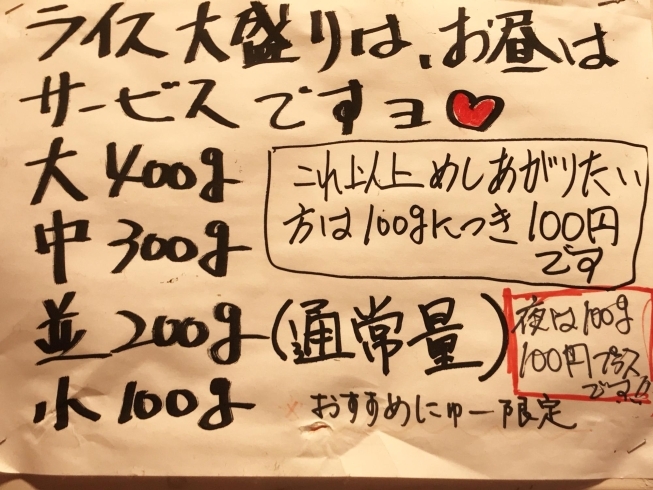 ライス大盛りは、お昼は
サービスですヨ
大 400g
これ以上めしあがりたい
方は100gにつき100円
です
中 300g
並 200g(通常量)
夜は100g
100円プラス
です!!
小 100g
×おすすめにゅー限定